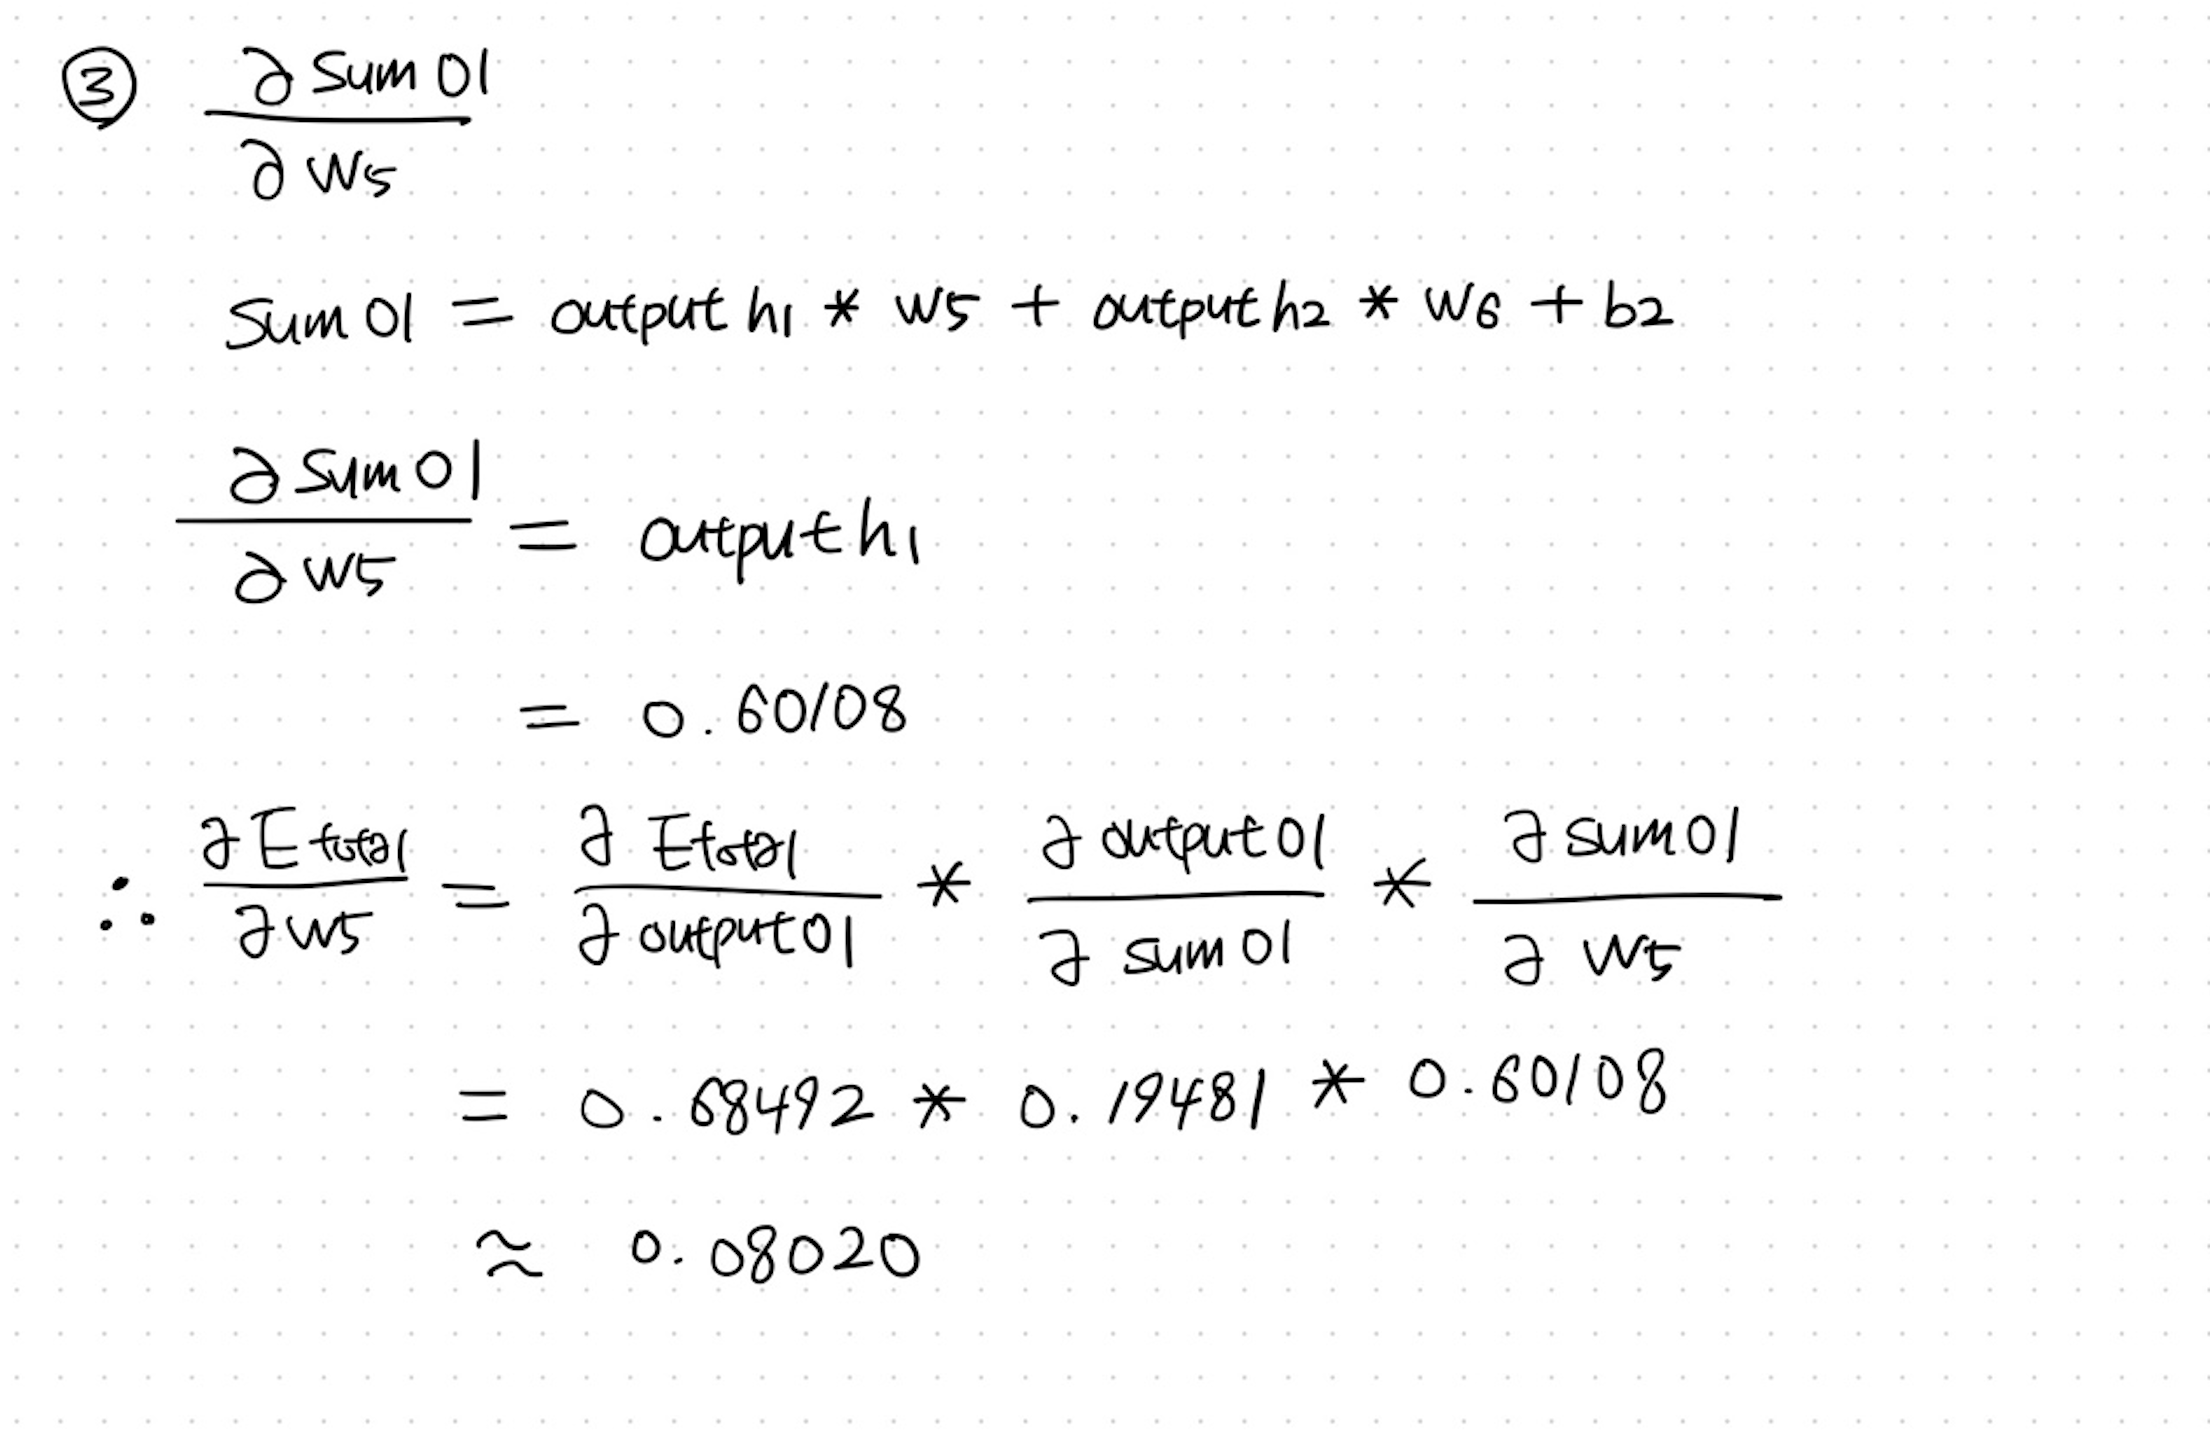 ③ ∂ sum 01
∂ w5
sum 01 = output h1 * w5 + output h2 * w6 + b2
∂ sum 01
∂ w5 = output h1
= 0.60108
∴ ∂ E total / ∂ w5 = ∂ E total / ∂ output 01 * ∂ output 01 / ∂ sum 01 * ∂ sum 01 / ∂ w5
= 0.68492 * 0.19481 * 0.60108
≈ 0.08020